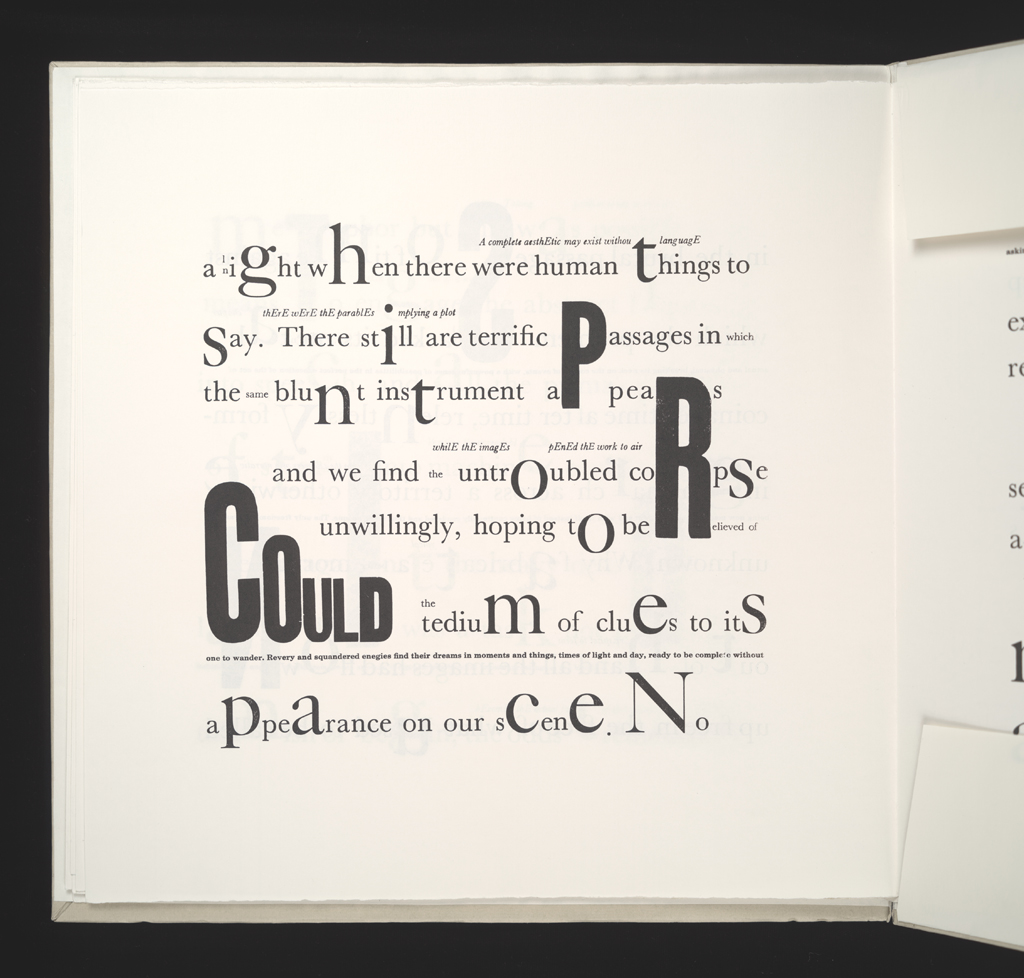 A complete aesthEtic may exist withou t languagE
a l/night when there were human things to
thErE wErE thE parablEs implying a plot
Say. There still are terrific Passages in which
the same blunt instrument apPeaRs
whilE thE imagEs OpEnEd thE work to air
and we find the untrOubled coRpSe
unwillingly, hoping tO be Relieved of
COULD
the
tedium of clues to itS
one to wander. Revery and squandered enegies find their dreams in moments and things, times of light and day, ready to be complete without
appearance on our sCene. No
aski
ex
re
se
a